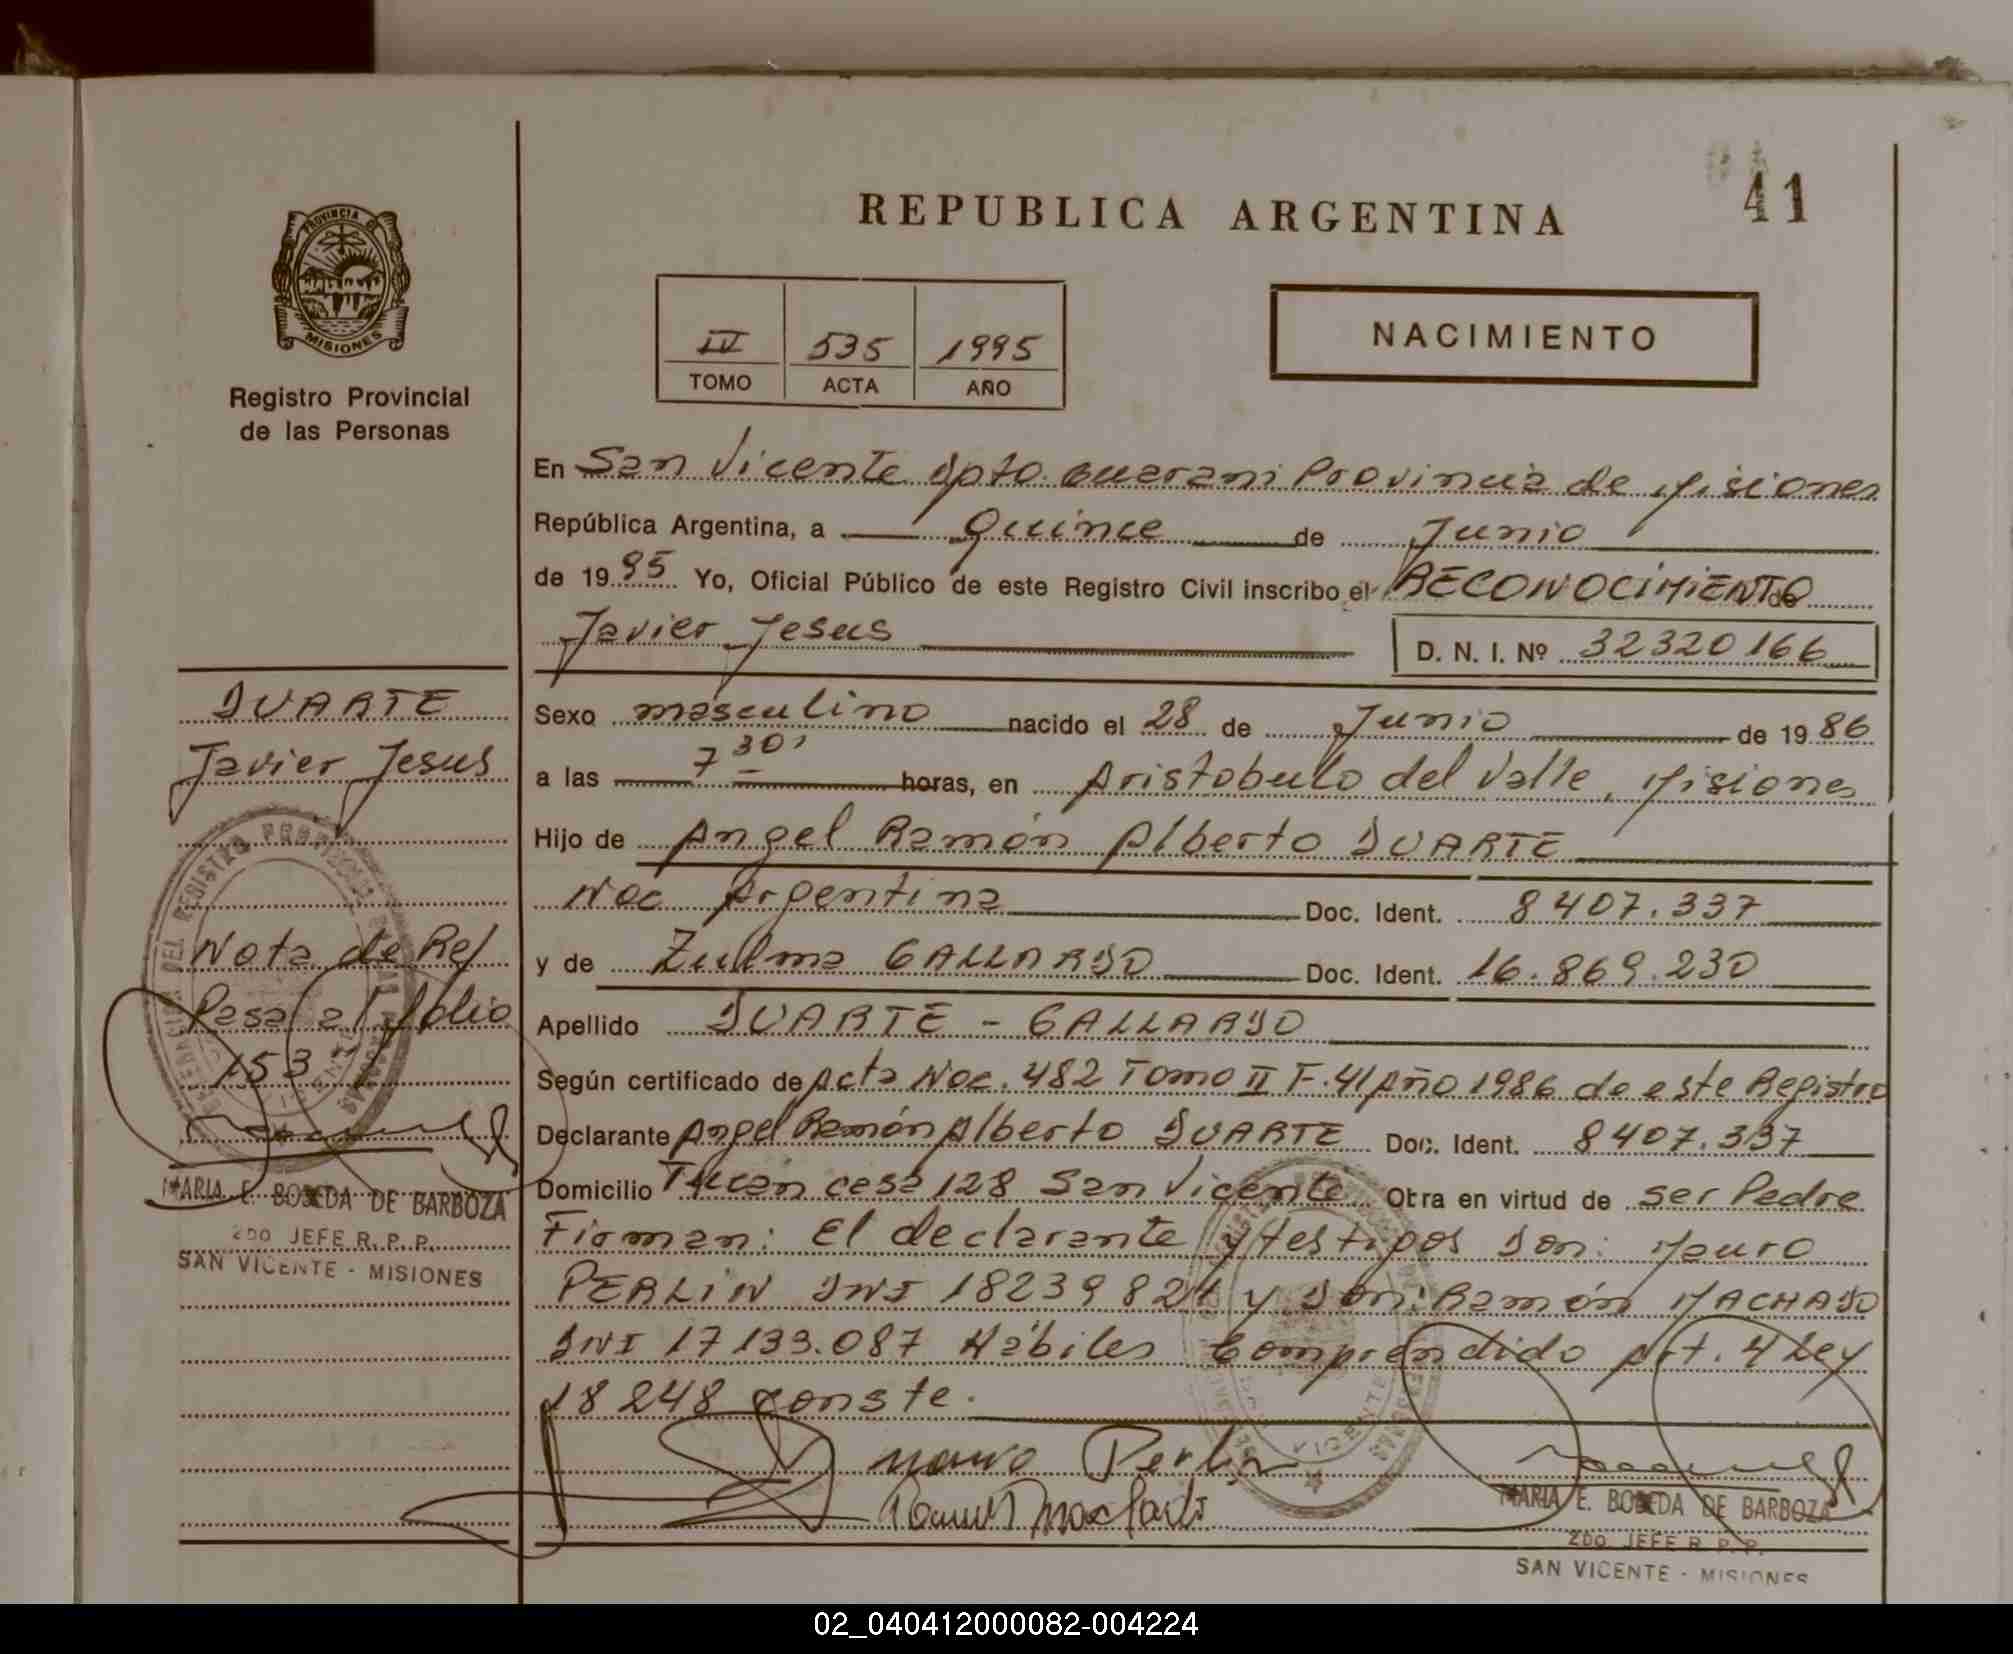 REPUBLICA ARGENTINA
41
PROVINCIA DE
MISIONES
Registro Provincial
de las Personas
IV 535 1995
TOMO ACTA AÑO
NACIMIENTO
En San Vicente Dpto. Guarani Provincia de Misiones
República Argentina, a Quince de Junio
de 1995 Yo, Oficial Público de este Registro Civil inscribo el RECONOCIMIENTO de
Javier Jesus D. N. I. Nº 32320166
Sexo masculino nacido el 28 de Junio de 1986
a las 7 30' horas, en Aristobulo del Valle, Misiones
Hijo de Angel Ramón Alberto DUARTE
Nac Argentina Doc. Ident. 8407.337
y de Zulma GALLARDO Doc. Ident. 16.869.230
Apellido DUARTE - GALLARDO
Según certificado de Acta Nac. 482 Tomo II F. 41 Año 1986 de este Registro
Declarante Angel Ramón Alberto DUARTE Doc. Ident. 8407.337
Domicilio Tucan casa 128 San Vicente Otra en virtud de ser Padre
Firman: El declarante y testigos Don: Mauro
PERLIN DNI 18239824 y Don: Ramón MACHADO
DNI 17133.087 Hábiles Comprendido Art. 4 Ley
18248 conste.
Mauro Perlin
MARIA E. BOBEDA DE BARBOZA
2DO. JEFE R. P. P.
SAN VICENTE - MISIONES
DUARTE
Javier Jesus
Nota de Ref
Pasa al folio
153
MARIA E. BOBEDA DE BARBOZA
2DO JEFE R. P. P.
SAN VICENTE - MISIONES
02_040412000082-004224